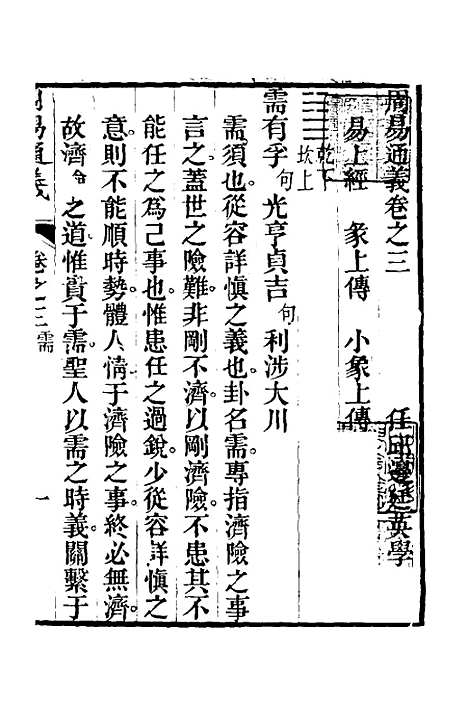 周易通義卷之三
任邱邊廷英學
易上經 彖上傳 小象上傳
乾下
坎上
需有孚句光亨貞吉句利涉大川
需須也從容詳慎之義也卦名需專指濟險之事
言之蓋世之險難非剛不濟以剛濟險不患其不
能任之爲己事也惟患任之過銳少從容詳慎之
意則不能順時勢體人情于濟險之事終必無濟
故濟 之道惟貴于需聖人以需之時義關繫于
周易通義
卷之三需
一